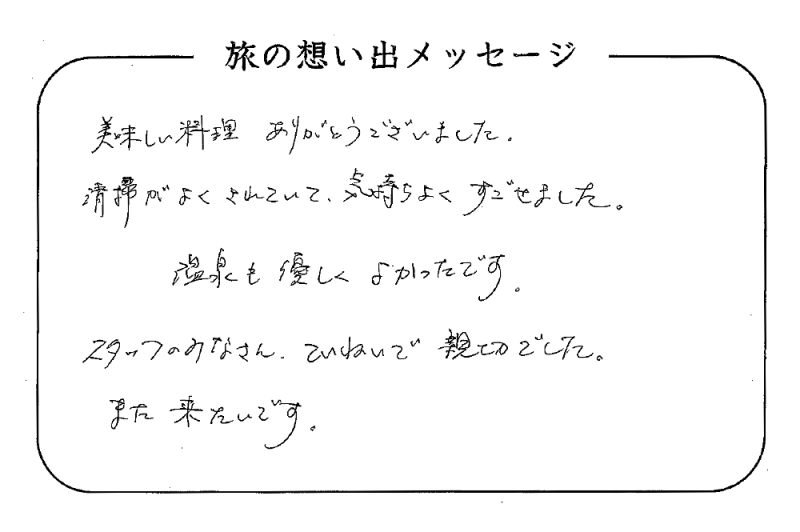 旅の想い出メッセージ
美味しい料理 ありがとうございました.
清掃がよくされていて、気持ちよく すごせました。
温泉も優しく よかったです。
スタッフのみなさん、ていねいで 親切でした。
また 来たいです。